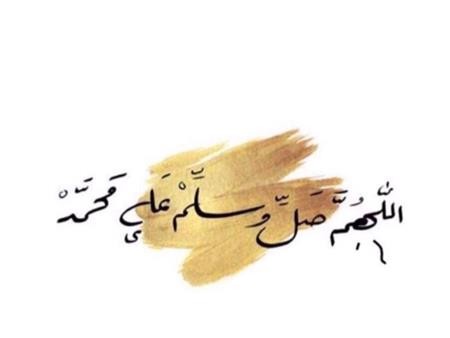 اللَّهُمَّ صَلِّ وَسَلِّمْ عَلَى مُحَمَّدْ